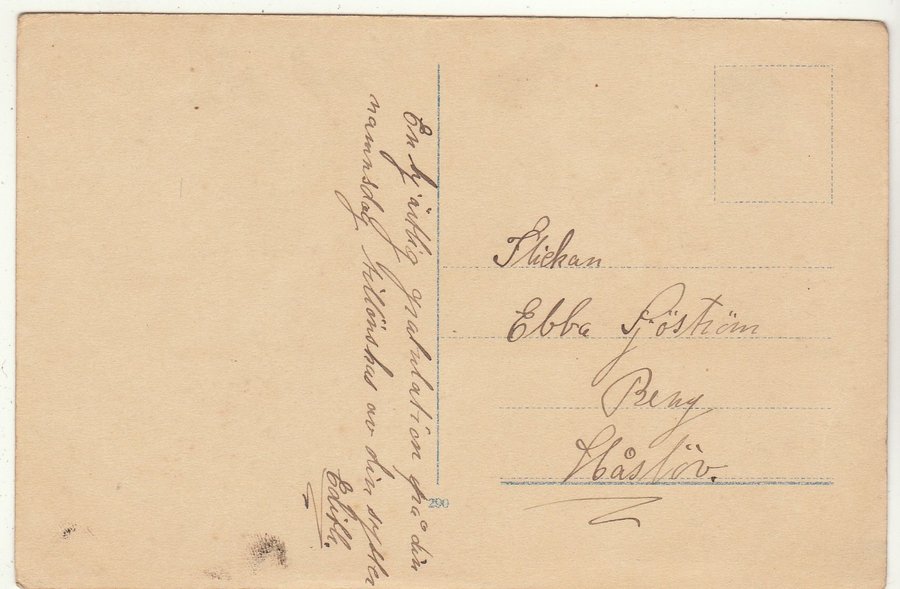 En hjärtlig gratulation på din
namnsdag tillönskas av din syster
Edith.
290
Flickan
Ebba Sjöström
Beng
Håslöv.